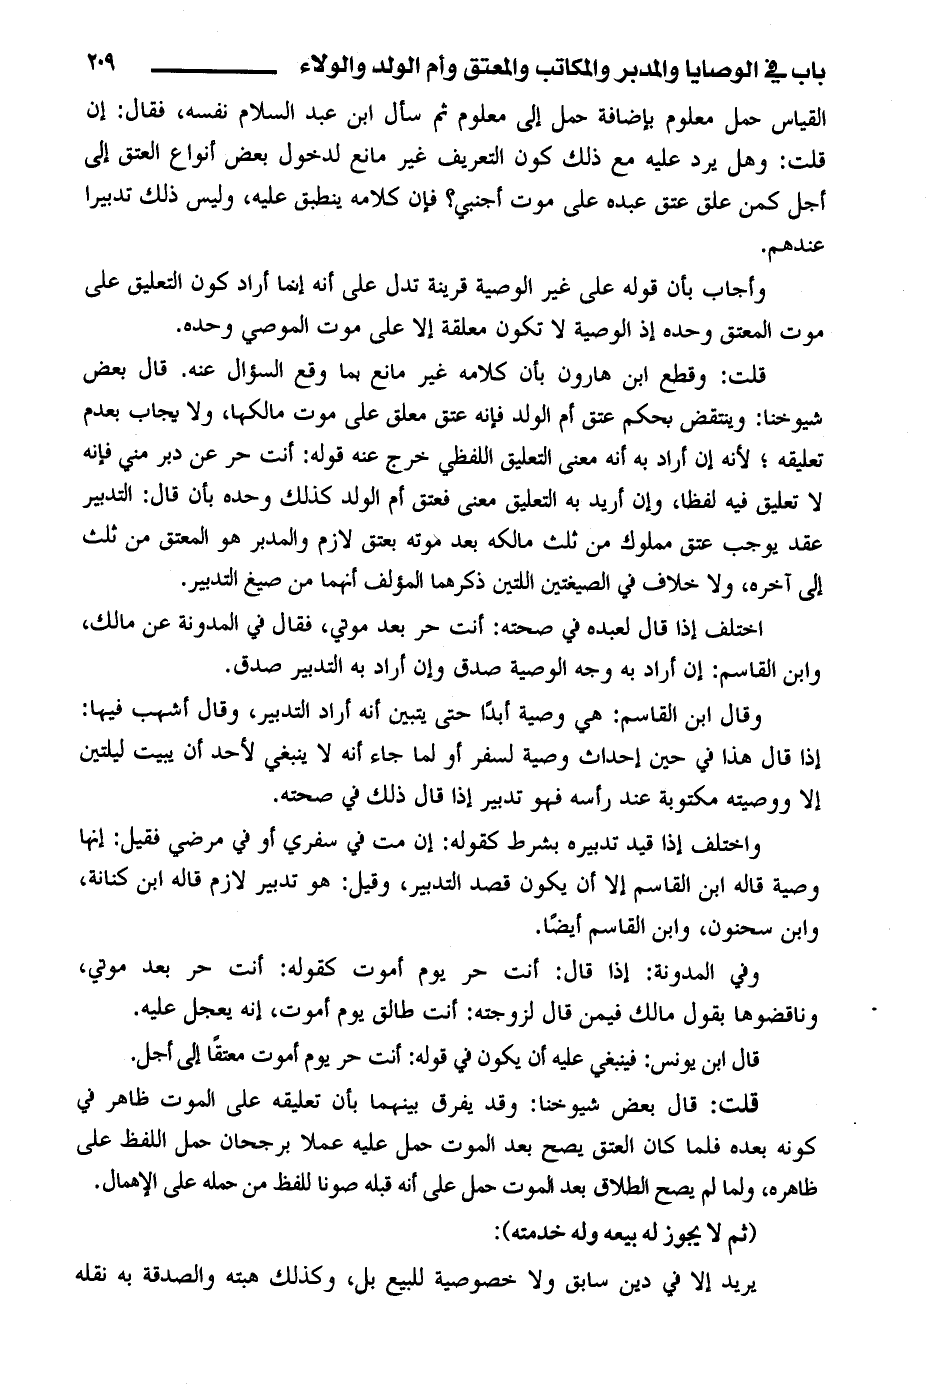 باب في الوصايا والمدبر والمكاتب والمعتق وأم الولد والولاء ٢٠٩
القياس حمل معلوم بإضافة حمل إلى معلوم ثم سأل ابن عبد السلام نفسه، فقال: إن
قلت: وهل يرد عليه مع ذلك كون التعريف غير مانع لدخول بعض أنواع العتق إلى
أجل كمن علق عتق عبده على موت أجنبي؟ فإن كلامه ينطبق عليه، وليس ذلك تدبيرا
عندهم.
وأجاب بأن قوله على غير الوصية قرينة تدل على أنه إنما أراد كون التعليق على
موت المعتق وحده إذ الوصية لا تكون معلقة إلا على موت الموصي وحده.
قلت: وقطع ابن هارون بأن كلامه غير مانع بما وقع السؤال عنه. قال بعض
شيوخنا: وينتقض بحكم عتق أم الولد فإنه عتق معلق على موت مالكها، ولا يجاب بعدم
تعليقه ؛ لأنه إن أراد به أنه معنى التعليق اللفظي خرج عنه قوله: أنت حر عن دبر مني فإنه
لا تعليق فيه لفظا، وإن أريد به التعليق معنى فعتق أم الولد كذلك وحده بأن قال: التدبير
عقد يوجب عتق مملوك من ثلث مالكه بعد موته بعتق لازم والمدبر هو المعتق من ثلث
إلى آخره، ولا خلاف في الصيغتين اللتين ذكرهما المؤلف أنهما من صيغ التدبير.
اختلف إذا قال لعبده في صحته: أنت حر بعد موتي، فقال في المدونة عن مالك،
وابن القاسم: إن أراد به وجه الوصية صدق وإن أراد به التدبير صدق.
وقال ابن القاسم: هي وصية أبدًا حتى يتبين أنه أراد التدبير، وقال أشهب فيها:
إذا قال هذا في حين إحداث وصية لسفر أو لما جاء أنه لا ينبغي لأحد أن يبيت ليلتين
إلا ووصيته مكتوبة عند رأسه فهو تدبير إذا قال ذلك في صحته.
واختلف إذا قيد تدبيره بشرط كقوله: إن مت في سفري أو في مرضي فقيل: إنها
وصية قاله ابن القاسم إلا أن يكون قصد التدبير، وقيل: هو تدبير لازم قاله ابن كنانة،
وابن سحنون، وابن القاسم أيضًا.
وفي المدونة: إذا قال: أنت حر يوم أموت كقوله: أنت حر بعد موتي،
وناقضوها بقول مالك فيمن قال لزوجته: أنت طالق يوم أموت، إنه يعجل عليه.
قال ابن يونس: فينبغي عليه أن يكون في قوله: أنت حر يوم أموت معتقًا إلى أجل.
قلت: قال بعض شيوخنا: وقد يفرق بينهما بأن تعليقه على الموت ظاهر في
كونه بعده فلما كان العتق يصح بعد الموت حمل عليه عملا برجحان حمل اللفظ على
ظاهره، ولما لم يصح الطلاق بعد الموت حمل على أنه قبله صونا للفظ من حمله على الإهمال.
(ثم لا يجوز له بيعه وله خدمته):
يريد إلا في دين سابق ولا خصوصية للبيع بل، وكذلك هبته والصدقة به نقله